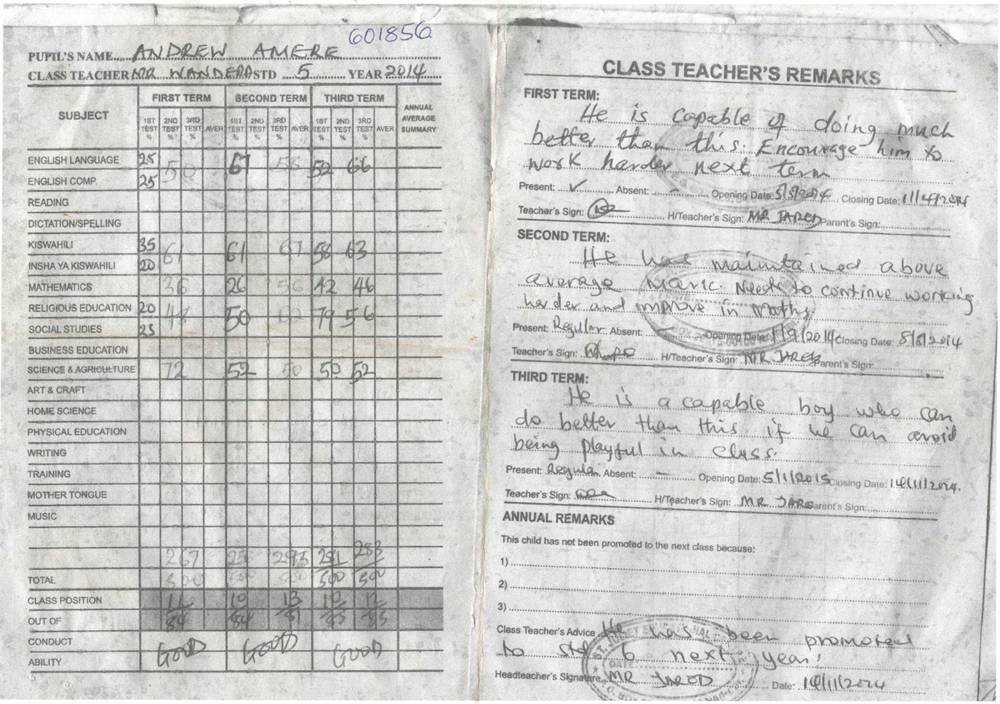 601856
PUPIL'S NAME ANDREW AMERE
CLASS TEACHER MR WANDERA STD 5 YEAR 2014
SUBJECT FIRST TERM SECOND TERM THIRD TERM ANNUAL AVERAGE SUMMARY
1ST TEST % 2ND TEST % 3RD TEST % AVER 1ST TEST % 2ND TEST % 3RD TEST % AVER 1ST TEST % 2ND TEST % 3RD TEST % AVER
ENGLISH LANGUAGE 25 50 67 58 52 66
ENGLISH COMP. 25
READING
DICTATION/SPELLING
KISWAHILI 35 61 61 67 58 63
INSHA YA KISWAHILI 20
MATHEMATICS 36 26 56 42 46
RELIGIOUS EDUCATION 20 48 50 79 56
SOCIAL STUDIES 25
BUSINESS EDUCATION
SCIENCE & AGRICULTURE 72 52 50 50 52
ART & CRAFT
HOME SCIENCE
PHYSICAL EDUCATION
WRITING
TRAINING
MOTHER TONGUE
MUSIC
267 293 281 283
TOTAL 500 500 500 500 500
CLASS POSITION 11 10 13 10 12
OUT OF 84 84
CONDUCT GOOD GOOD GOOD
ABILITY
CLASS TEACHER'S REMARKS
FIRST TERM:
He is capable of doing much
better than this. Encourage him to
work harder next term
Present: ✓ Absent: – Opening Date: 5/5/2014 Closing Date: 11/4/2014
Teacher's Sign: H/Teacher's Sign: MR JARED Parent's Sign:
SECOND TERM:
He has maintained above
average mark. Needs to continue working
harder and improve in Maths
Present: Regular Absent: Opening Date: 1/9/2014 Closing Date: 8/8/2014
Teacher's Sign: H/Teacher's Sign: MR JARED Parent's Sign:
THIRD TERM:
He is a capable boy who can
do better than this if he can avoid
being playful in class.
Present: Regular Absent: – Opening Date: 5/1/2015 Closing Date: 14/11/2014
Teacher's Sign: H/Teacher's Sign: MR JARED Parent's Sign:
ANNUAL REMARKS
This child has not been promoted to the next class because:
1)
2)
3)
Class Teacher's Advice He has been promoted
to std 6 next year.
Headteacher's Signature MR JARED Date: 14/11/2014